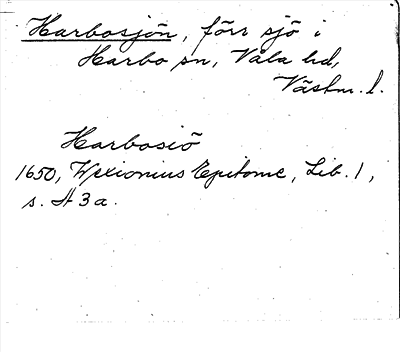 Harbosjön, förr sjö i
Harbo sn, Våla hd,
Västm. l.
Harbosiö
1650, Wexionius Epitome, Lib. 1,
s. A 3 a.